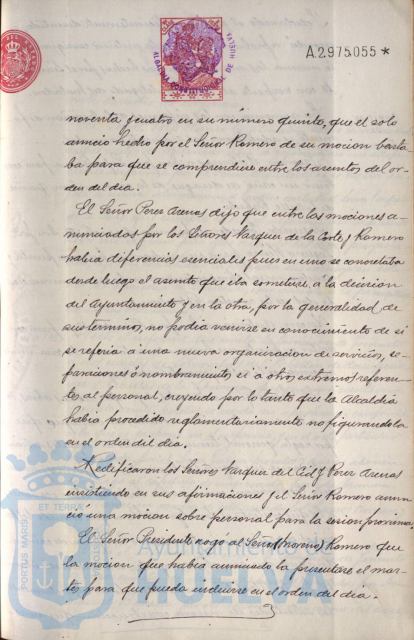 A.2975.055 *
ALCALDIA CONSTITUCIONAL DE HUELVA
noventa y cuatro en su número quinto, que el solo
anuncio hecho por el Señor Romero de su mocion basta-
ba para que se comprendiese entre los asuntos del or-
den del dia.
El Señor Perez Arenas dijo que entre las mociones a-
nunciadas por los Señores Vazquez de la Corte y Romero
habia diferencias esenciales pues en una se concretaba
desde luego el asunto que iba á someterse á la decision
del Ayuntamiento y en la otra, por la generalidad de
sus terminos, no podia venirse en conocimiento de si
se referia á una nueva organizacion de servicios, se-
paraciones ó nombramientos, si á otros extremos referen-
tes al personal, creyendo por lo tanto que la Alcaldia
habia procedido reglamentariamente no figurandola
en el orden del dia.
Rectificaron los Señores Vazquez del Cid y Perez Arenas
insistiendo en sus afirmaciones y el Señor Romero anun-
ció una mocion sobre personal para la sesion proxima.
El Señor Presidente rogó al Señor (Moreno) Romero que
la mocion que habia anunciado la presentase el mar-
tes para que pueda incluirse en el orden del dia.
PORTUS MARIS
ET TERRAE
Ayuntamiento de
HUELVA